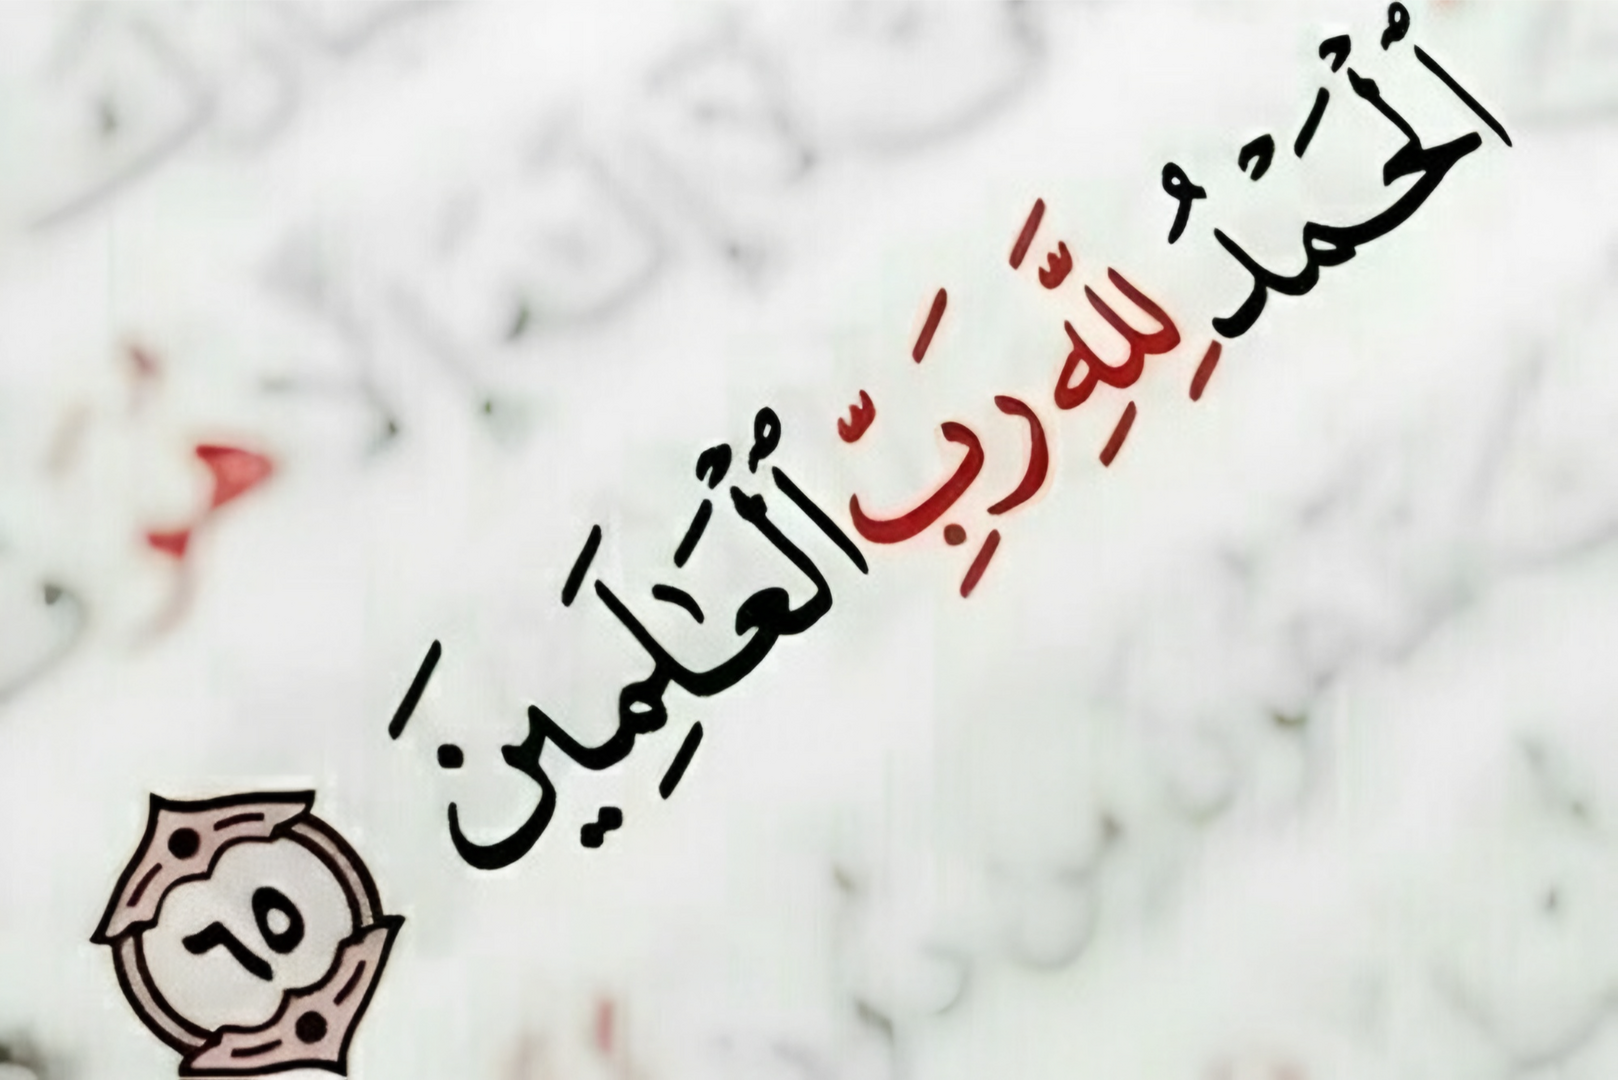 ٱلۡحَمۡدُ لِلَّهِ رَبِّ ٱلۡعَٰلَمِينَ ٦٥